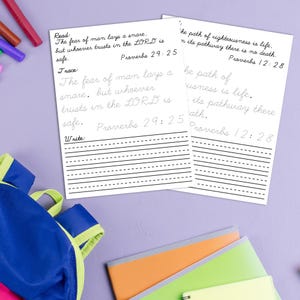 Read:
The fear of man lays a snare,
but whoever trusts in the LORD is
safe.
Proverbs 29:25
Trace:
The fear of man lays a
snare, but whoever
trusts in the LORD is
safe.
Proverbs 29:25
Write:
the path of righteousness is life,
in its pathway there is no death.
Proverbs 12:28
the path of
is life,
its pathway there
death.
Proverbs 12:28